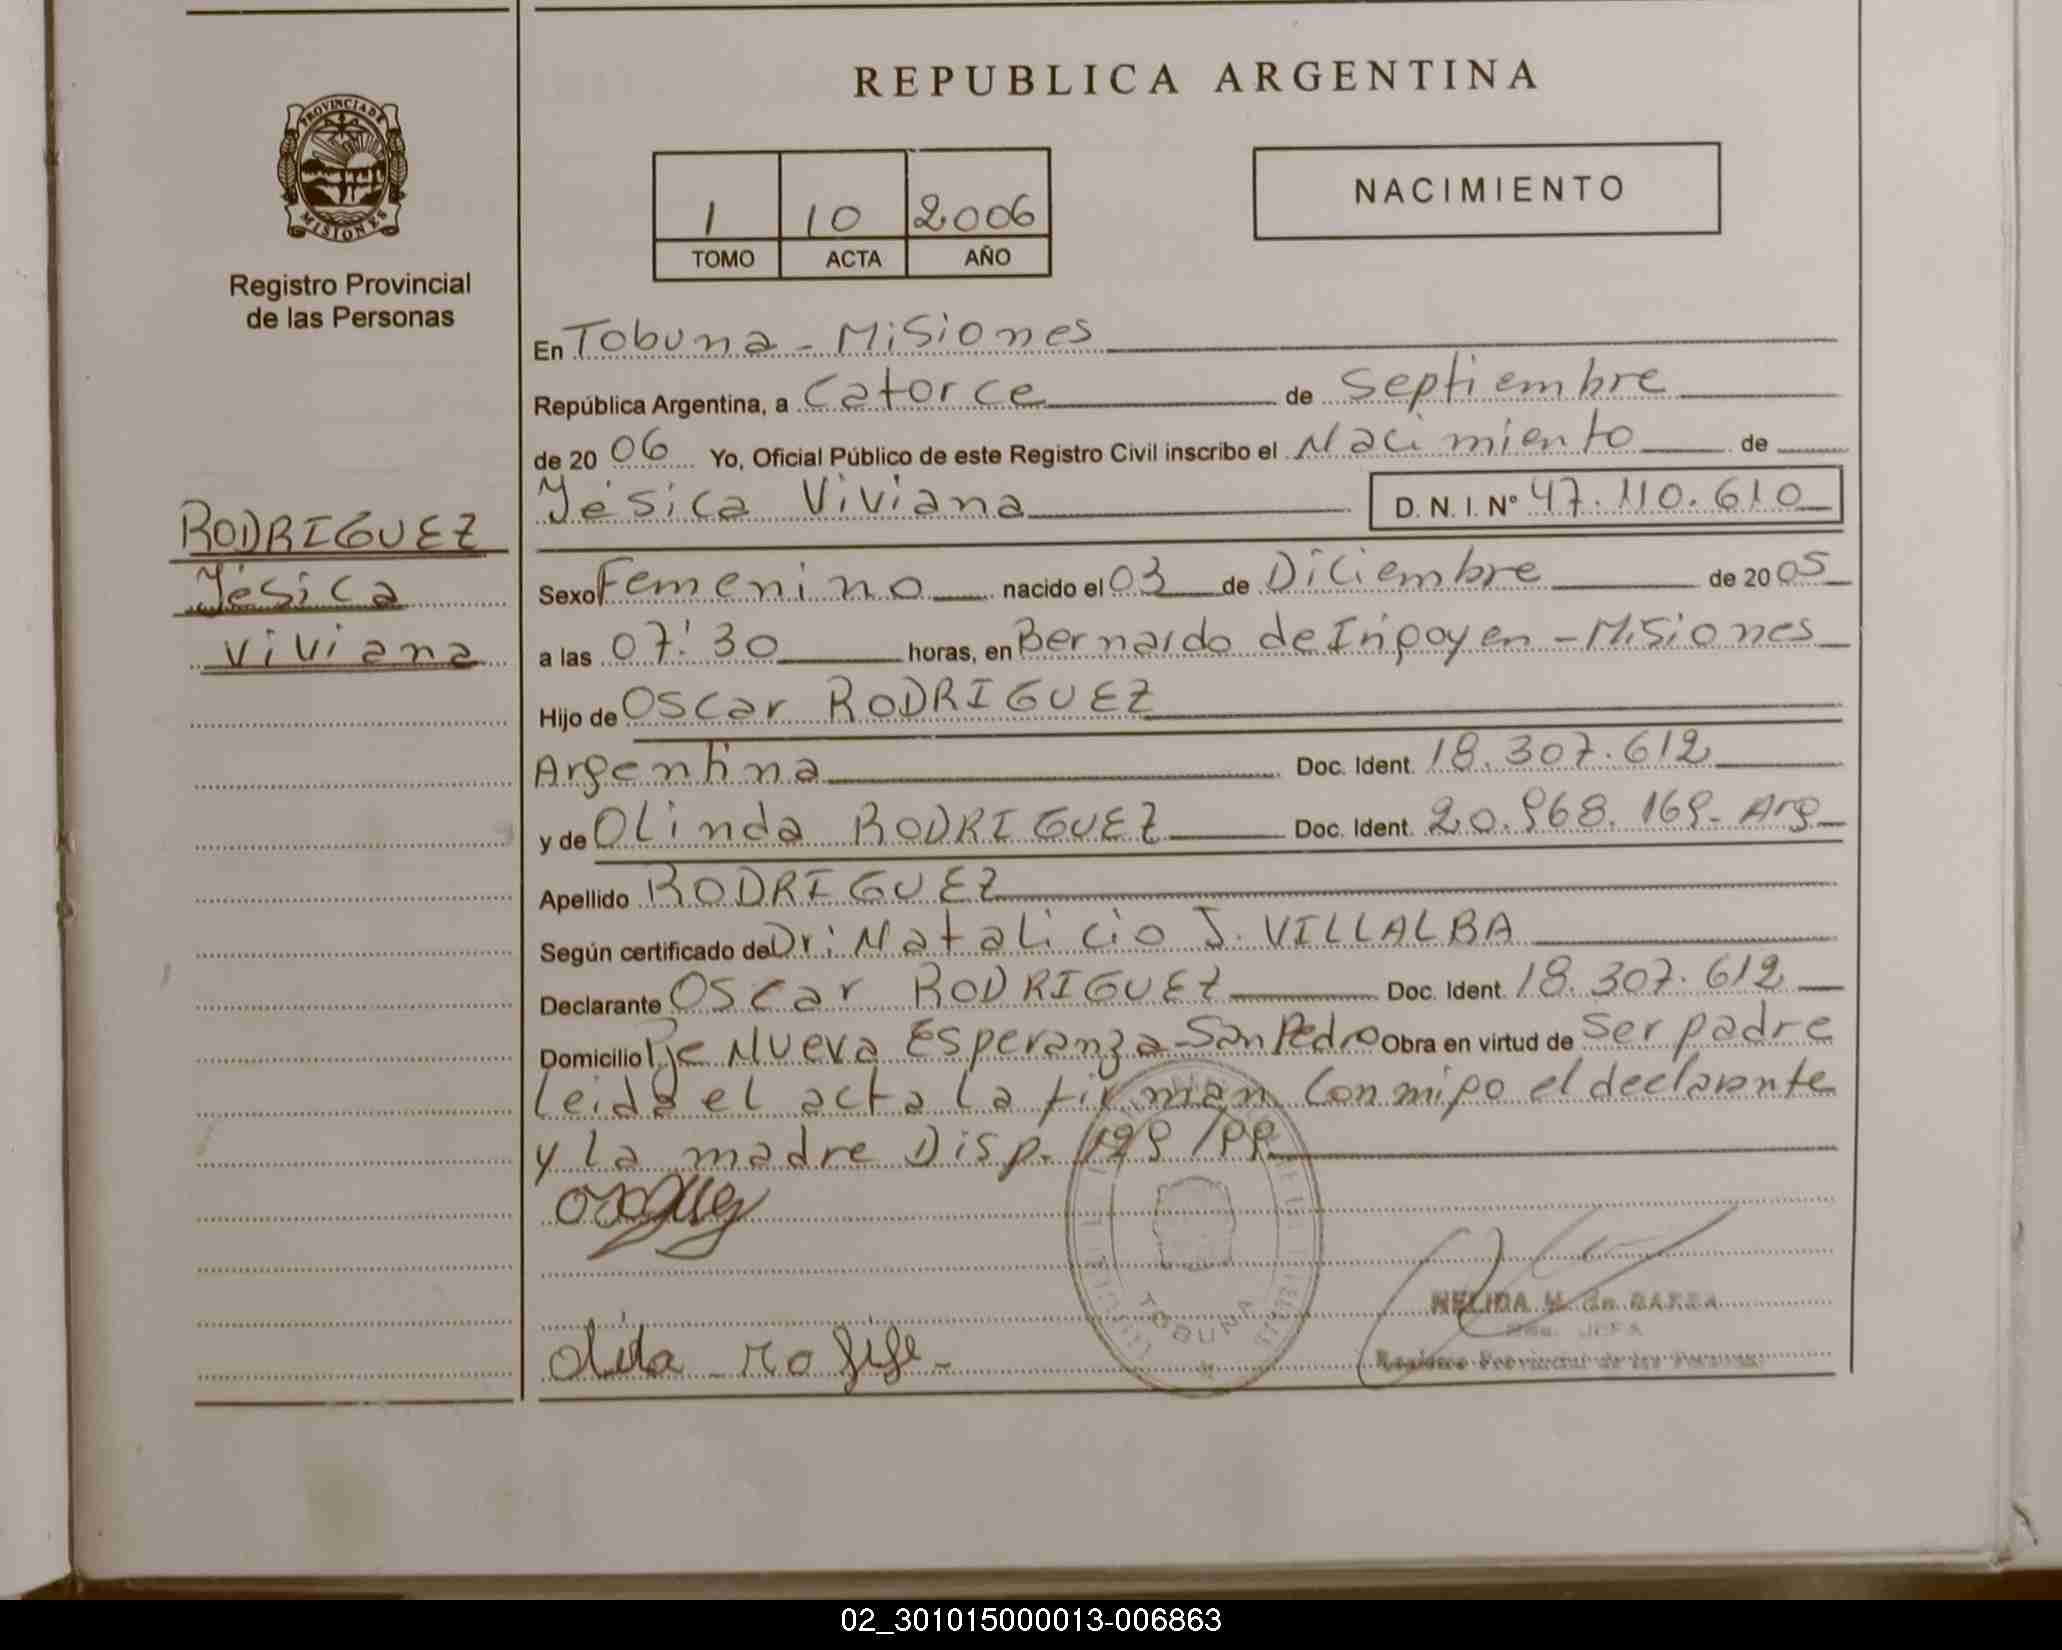 REPUBLICA ARGENTINA
PROVINCIA DE
MISIONES
Registro Provincial
de las Personas
1 10 2006
TOMO ACTA AÑO
NACIMIENTO
En Tobuna - Misiones
República Argentina, a Catorce de Septiembre
de 2006 Yo, Oficial Público de este Registro Civil inscribo el Nacimiento de
Yésica Viviana D. N. I. Nº 47.110.610
RODRIGUEZ
Yésica
Viviana
Sexo Femenino nacido el 03 de Diciembre de 2005
a las 07:30 horas, en Bernardo de Irigoyen - Misiones
Hijo de Oscar RODRIGUEZ
Argentina Doc. Ident. 18.307.612
y de Olinda RODRIGUEZ Doc. Ident. 20.968.169- Arg
Apellido RODRIGUEZ
Según certificado de Dr: Natalicio J. VILLALBA
Declarante Oscar RODRIGUEZ Doc. Ident. 18.307.612
Domicilio Pje Nueva Esperanza - San Pedro Obra en virtud de Ser padre
leida el acta la firman Conmigo el declarante
y la madre Disp. 199/99
TOBUNA
NELIDA
JEFA
Registro Provincial de las Personas
02_301015000013-006863